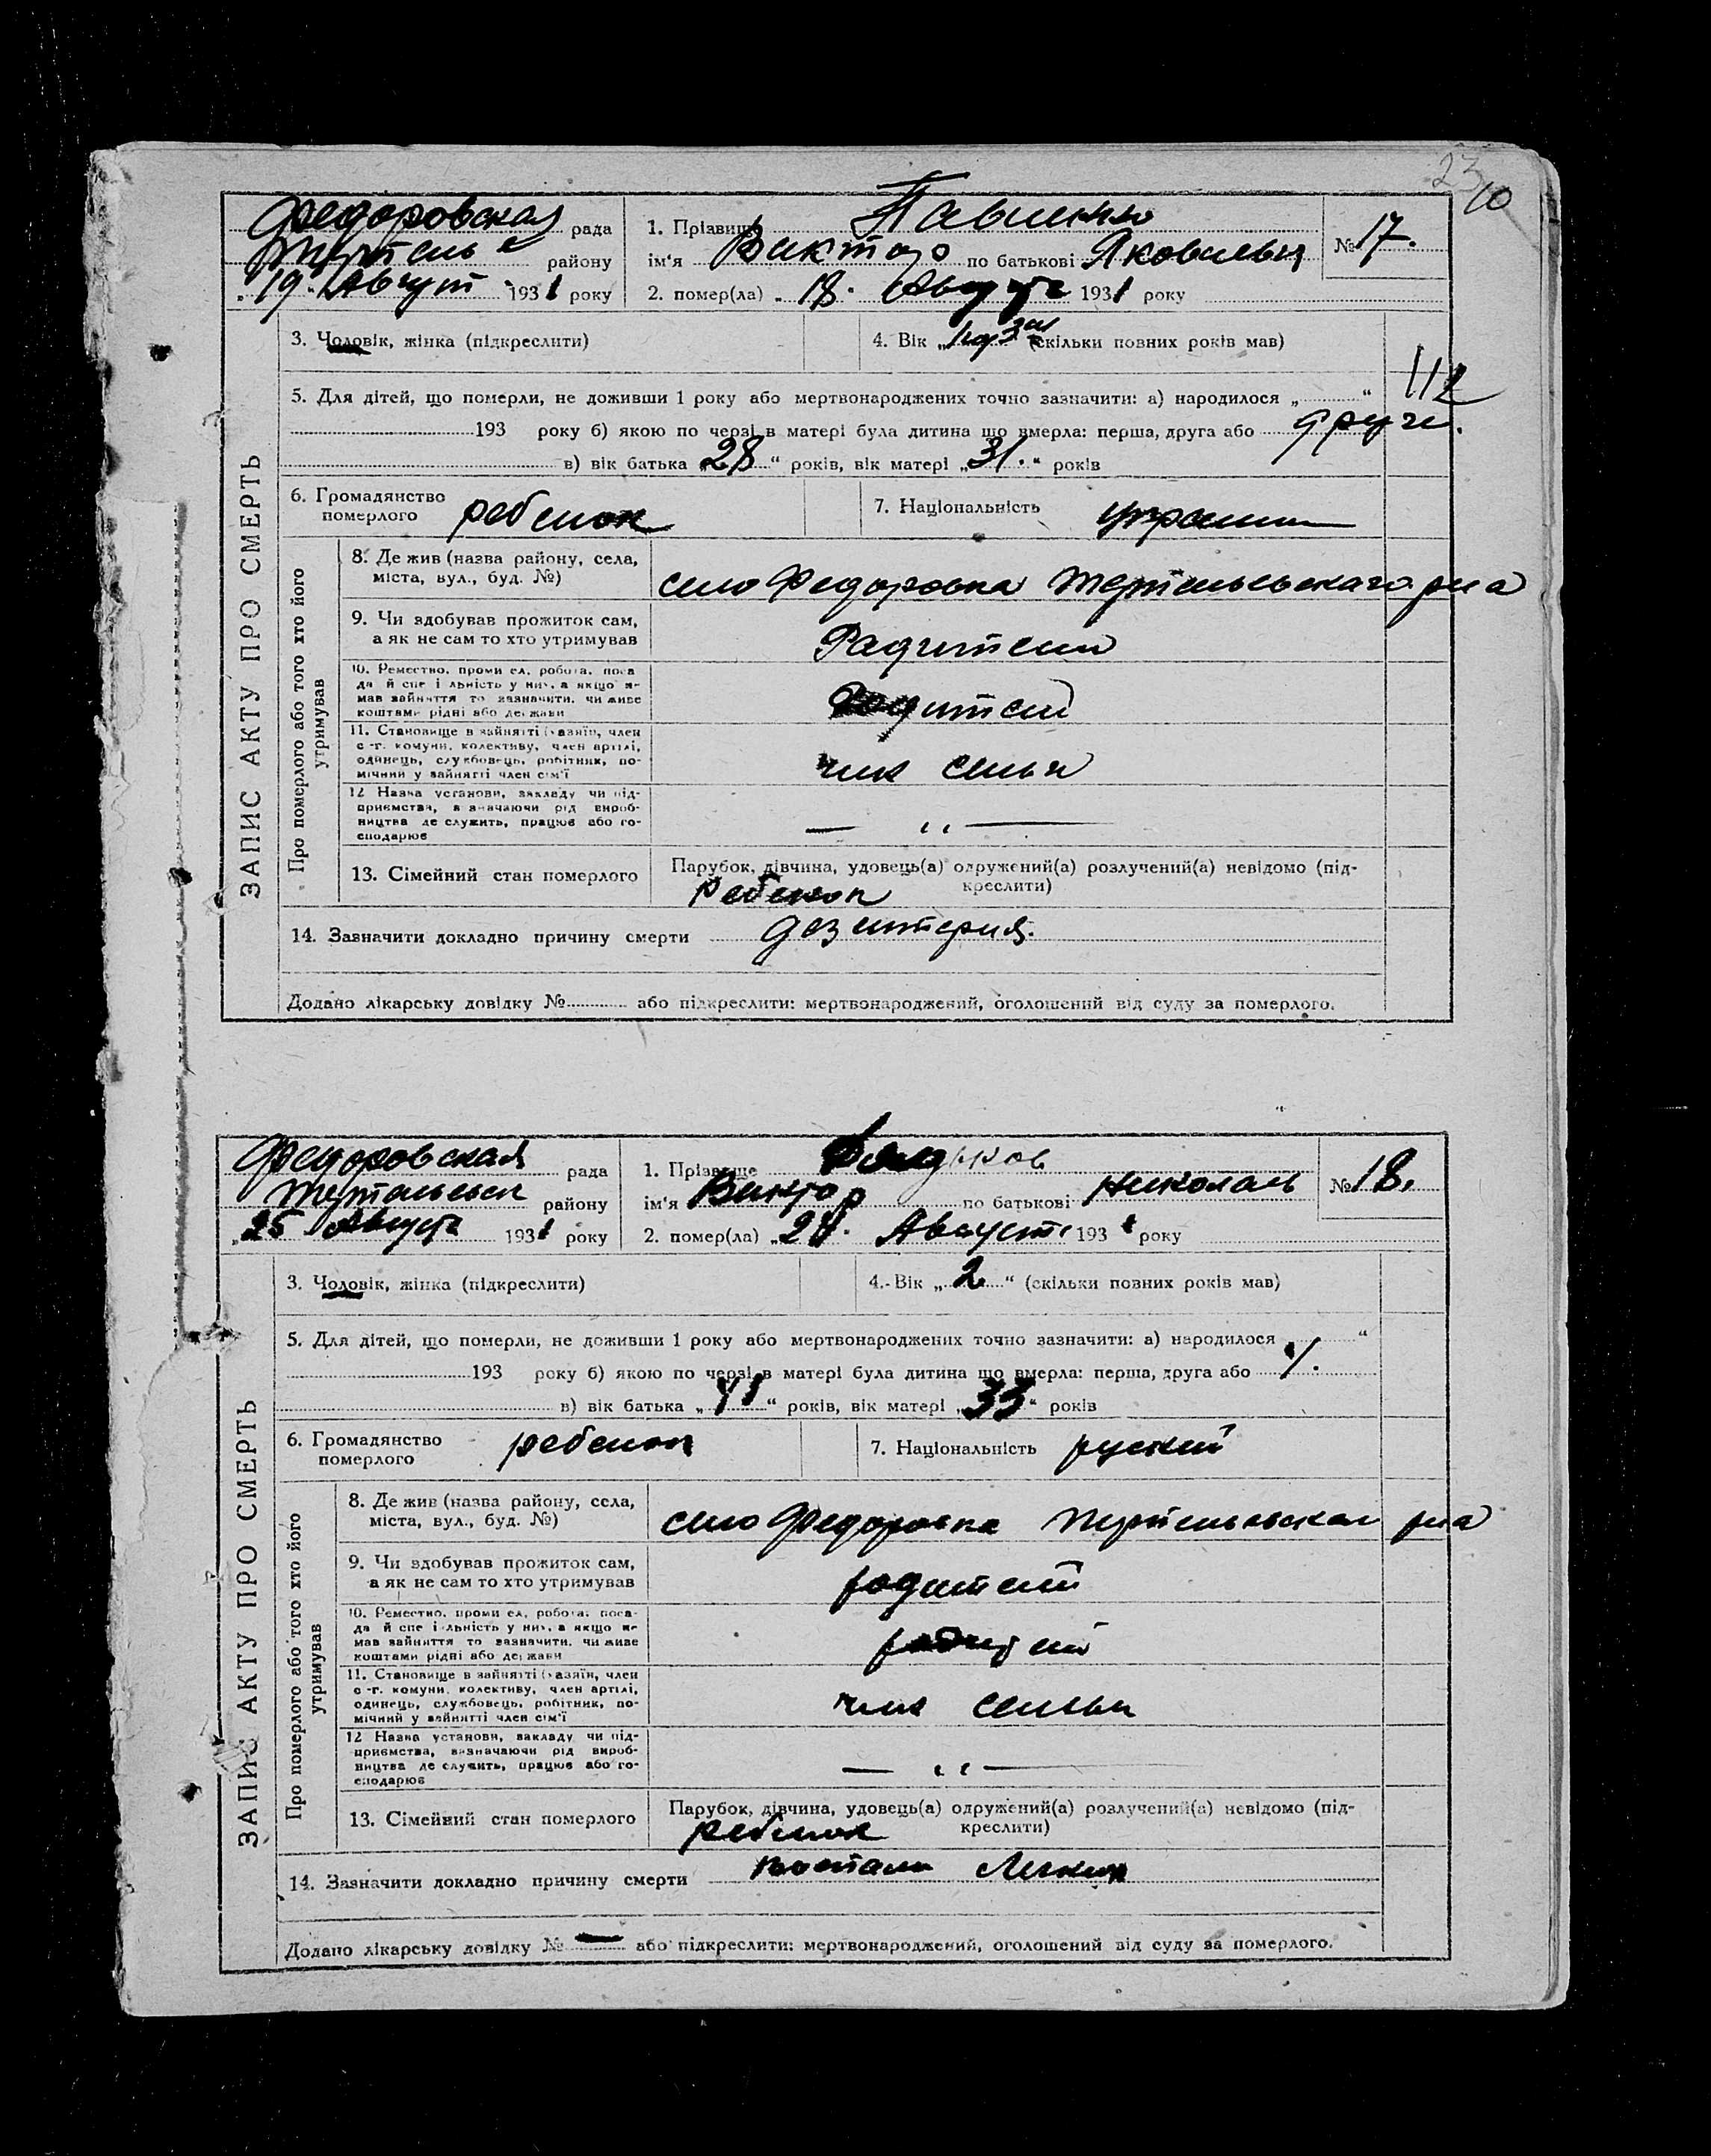 23
10
Федоровская рада
району
19. Август 1931 року
1. Прізвище
ім'я Виктор по батькові Яковлевич
2. помер(ла) „ 18. Август 1931 року
№ 17.
ЗАПИС АКТУ ПРО СМЕРТЬ
3. Чоловік, жінка (підкреслити)
4. Вік „ (скільки повних років мав)
5. Для дітей, що померли, не доживши 1 року або мертвонароджених точно зазначити: а) народилося „ “
193 року б) якою по черзі в матері була дитина що вмерла: перша, друга або
в) вік батька „28“ років, вік матері „31.“ років
6. Громадянство
померлого
ребенок
7. Національність
Про померлого або того хто його
утримував
8. Де жив (назва району, села,
міста, вул., буд. №)
село Федоровка
9. Чи здобував прожиток сам,
а як не сам то хто утримував
Радители
10. Ремество, проми ел, робота, поса
да й спе і льність у них, а якщо н-
мав зайняття то зазначити, чи живе
коштами рідні або держави
родители
11. Становище в зайнятті (хазяїн, член
с-г. комуни, колективу, член артілі,
одинець, службовець, робітник, по-
мічний у зайнятті член сім'ї
член семьи
12 Назва установи, закладу чи під-
приємства, в значаючи рід вироб-
ництва де служить, працює або го-
сподарює
— „ —
13. Сімейний стан померлого
Парубок, дівчина, удовець(а) одружений(а) розлучений(а) невідомо (під-
креслити)
ребенок
14. Зазначити докладно причину смерти дезинтерия.
Додано лікарську довідку № або підкреслити: мертвонароджений, оголошений від суду за померлого.
Федоровская рада
району
25 Август 1931 року
1. Прізвище
ім'я Виктор по батькові Николаев
2. помер(ла) „ Август 1931 року
№ 18.
ЗАПИС АКТУ ПРО СМЕРТЬ
3. Чоловік, жінка (підкреслити)
4. Вік „ 2 “ (скільки повних років мав)
5. Для дітей, що померли, не доживши 1 року або мертвонароджених точно зазначити: а) народилося “
193 року б) якою по черзі в матері була дитина що вмерла: перша, друга або
в) вік батька „ “ років, вік матері „33“ років
6. Громадянство
померлого
ребенок
7. Національність руский
Про померлого або того хто його
утримував
8. Де жив (назва району, села,
міста, вул., буд. №)
село Федоровка
9. Чи здобував прожиток сам,
а як не сам то хто утримував
родители
10. Ремество, проми ел, робота, поса-
да й спе і льність у них, а якщо н-
мав зайняття то зазначити, чи живе
коштами рідні або держави
11. Становище в зайнятті (хазяїн, член
с-г. комуни, колективу, член артілі,
одинець, службовець, робітник, по-
мічний у зайнятті член сім'ї
член семьи
12 Назва установи, закладу чи під-
приємства, визначаючи рід вироб-
ництва де служить, працює або го-
сподарює
— „ —
13. Сімейний стан померлого
Парубок, дівчина, удовець(а) одружений(а) розлучений(а) невідомо (під-
креслити)
ребенок
14. Зазначити докладно причину смерти
Додано лікарську довідку № — або підкреслити: мертвонароджений, оголошений від суду за померлого.